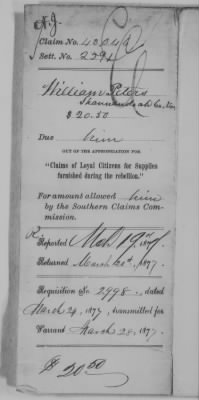 Claim No. 43049
Sett. No. 2294
William Peters
Shenandoah Co. Va.
$20.50
Due him
OUT OF THE APPROPRIATION FOR
"Claims of Loyal Citizens for Supplies
furnished during the rebellion."
For amount allowed him
by the Southern Claims Com-
mission.
Reported Mch 19th 1877.
Returned March 20th, 1877
Requisition No. 2998, dated
March 24, 1877, transmitted for
Warrant March 28, 1877.
$20.50